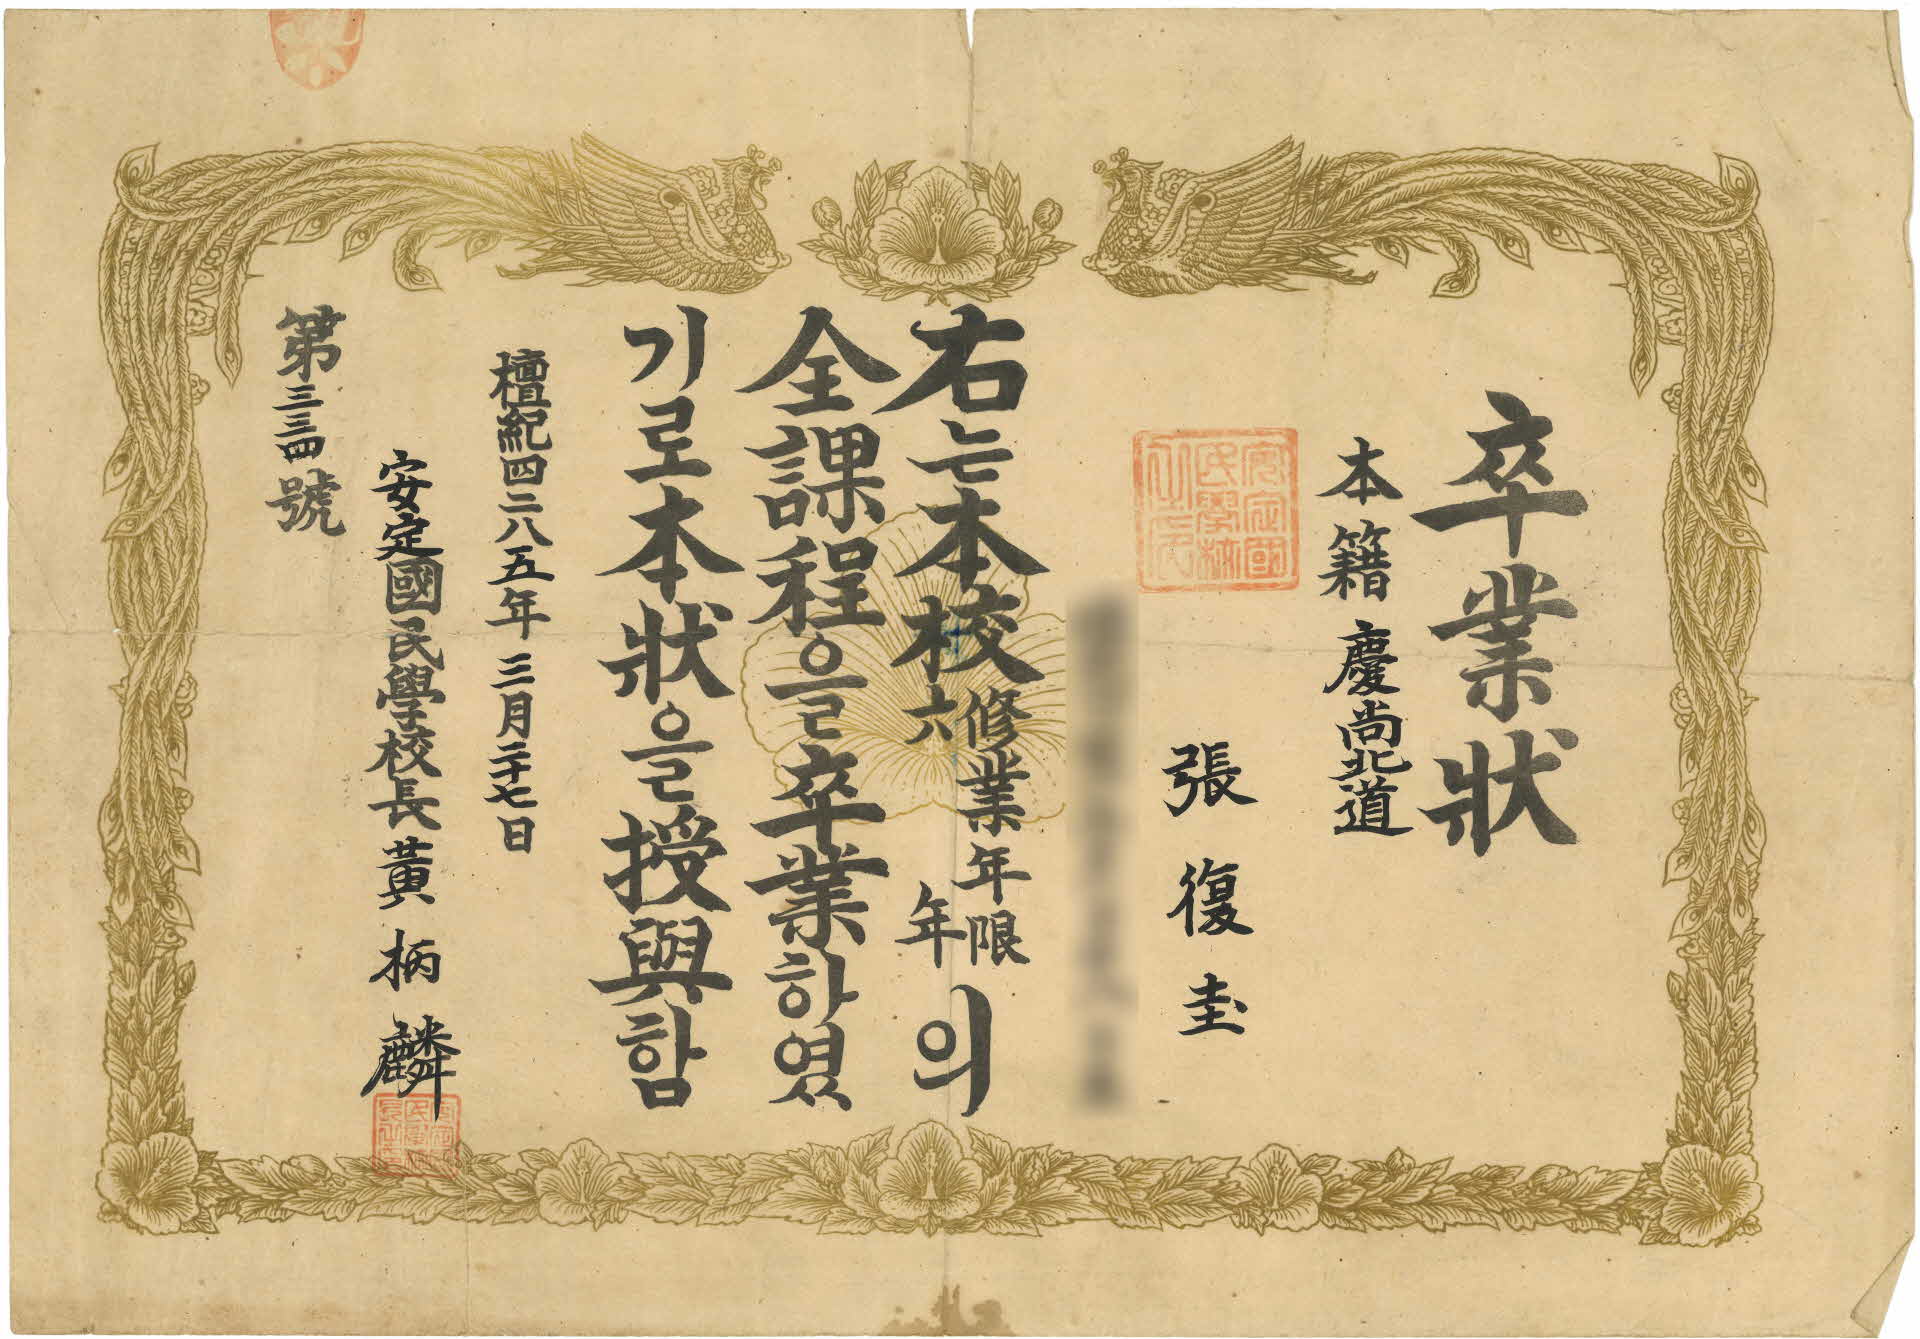 卒業狀
本籍 慶尚北道
張復圭
右는本校修業年限六年의
全課程을卒業하였
기로本狀을授與함
檀紀四二八五年三月二十七日
安定國民學校長 黃柄麟
第三三四號